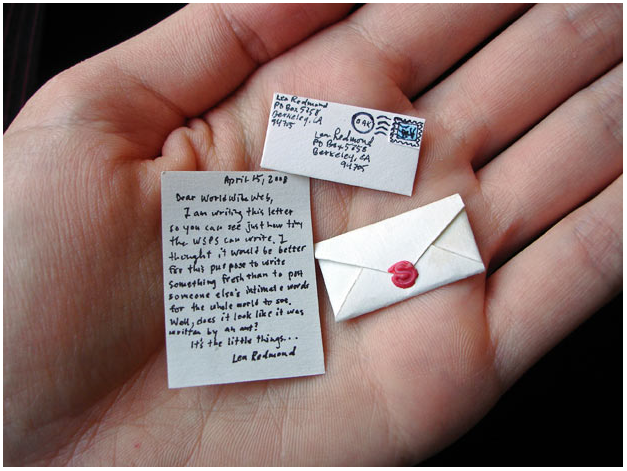 Lea Redmond
PO Box 5658
Berkeley, CA
94705
OAK
Lea Redmond
PO Box 5658
Berkeley, CA
94705
April 15, 2008
Dear World Wide Web,
I am writing this letter
so you can see just how tiny
the WSPS can write. I
thought it would be better
for this purpose to write
something fresh than to post
someone else's intimate words
for the whole world to see.
Well, does it look like it was
written by an ant?
It's the little things...
Lea Redmond
S